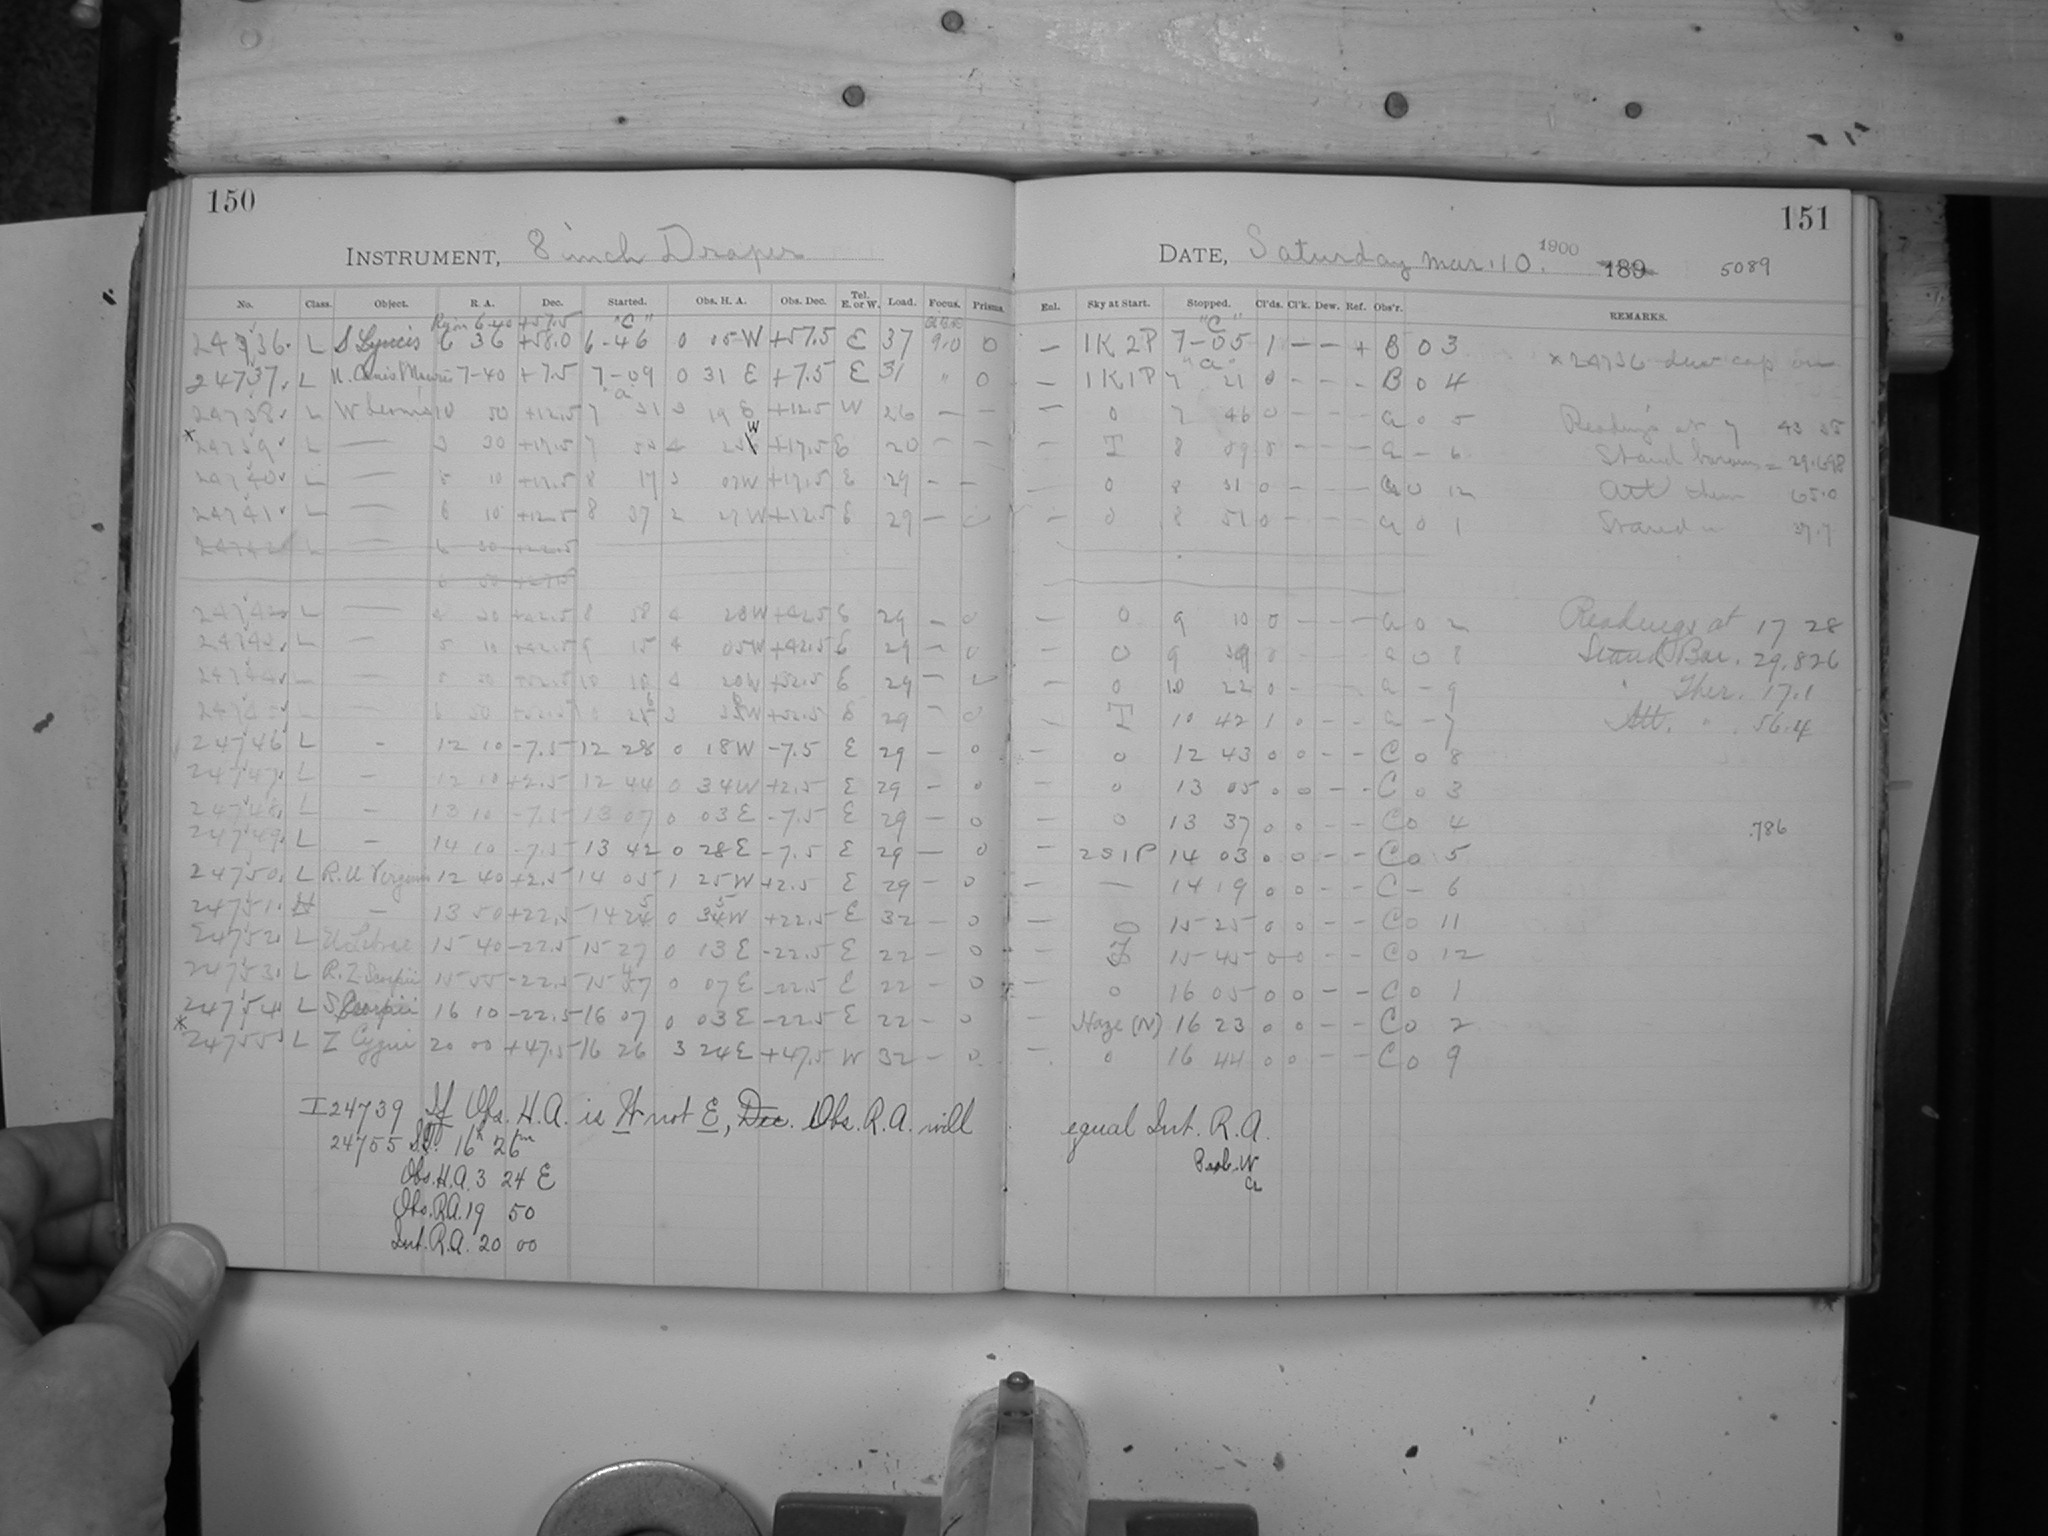 150
INSTRUMENT, 8 inch Draper
No. Class. Object. R. A. Dec. Started. Obs. H. A. Obs. Dec. Tel. E. or W. Load. Focus. Prisms.
6-40 +57.5 "C"
24736. L S Lyncis 6 36 +58.0 6-46 0 05 W +57.5 E 37 9.0 0
24737. L 7-40 +7.5 7-09 0 31 E +7.5 E 31 " 0
"a"
24738. L W Leonis 10 50 +12.5 7 31 3 19 E +12.5 W 26 — —
x 24739. L — 3 30 +17.5 7 W +17.5 E 20 — —
24740. L — 5 10 +17.5 8 17 3 07 W +17.5 E 29 — —
24741. L — 6 10 +12.5 8 37 2 27 W +12.5 E 29 — 0
24742 L — 6 30 +22.5
24742 L — 4 30 +42.5 8 58 4 28 W +42.5 E 29 — 0
24743. L — 5 10 +42.5 9 15 4 05 W +42.5 E 29 — 0
24744. L — 5 50 +52.5 10 10 4 20 W +52.5 E 29 —
24745. L — 6 50 +52.5 3 W +52.5 E 29 — 0
24746. L - 12 10 -7.5 12 28 0 18 W -7.5 E 29 - 0
24747. L - 12 10 +2.5 12 44 0 34 W +2.5 E 29 - 0
24748. L - 13 10 -7.5 13 07 0 03 E -7.5 E 29 - 0
24749. L - 14 10 -7.5 13 42 0 28 E -7.5 E 29 — 0
24750. L R.U Virginis 12 40 +2.5 14 05 1 25 W +2.5 E 29 - 0
24751. - 13 50 +22.5 14 25 0 35 W +22.5 E 32 - 0
24752. L U Librae 15 40 -22.5 15 27 0 13 E -22.5 E 22 - 0
24753. L R.Z Scorpii 15 55 -22.5 15 47 0 07 E -22.5 E 22 - 0
24754. L S Scorpii 16 10 -22.5 16 07 0 03 E -22.5 E 22 - 0
x 24755. L Z Cygni 20 00 +47.5 16 26 3 24 E +47.5 W 32 - 0
24739 If Obs. H.A. is W not E, Dec. Obs. R.A. will
24755 S.T. 16h 26m
Obs. H.A. 3 24 E
Obs. R.A. 19 50
Int. R.A. 20 00
151
DATE, Saturday Mar. 10. 1900 189 5089
Enl. Sky at Start. Stopped. Cl'ds. Cl'k. Dew. Ref. Obs'r. REMARKS.
"C"
— 1K2P 7-05 1 — — + B 0 3 x 24736 dew cap on
"a"
— 1K1P 7 21 0 - - - B 0 4
— 0 7 46 0 - - - a 0 5 Readings at 7 43
— I 8 09 0 - - - a - 6 Stand barom = 29.698
— 0 8 31 0 - - - a 0 12 Att ther 65.0
— 0 8 51 0 - - - a 0 1 37.7
— 0 9 10 0 - - - a 0 2 Readings at 17 28
— 0 9 0 - - - a 0 8 Stand Bar. 29.826
— 0 10 22 0 - - a - 9 Ther. 17.1
— I 10 42 1 0 - - a - 7 Att. " 56.4
— 0 12 43 0 0 - - C 0 8
— 0 13 05 0 0 - - C 0 3
— 0 13 37 0 0 - - C 0 4 .786
— 2S1P 14 03 0 0 - - C 0 5
— — 14 19 0 0 - - C - 6
— 0 15 25 0 0 - - C 0 11
— 15 45 0 0 - - C 0 12
— 0 16 05 0 0 - - C 0 1
— Haze (N) 16 23 0 0 - - C 0 2
— 0 16 44 0 0 - - C 0 9
equal Int. R.A.
Prob. W